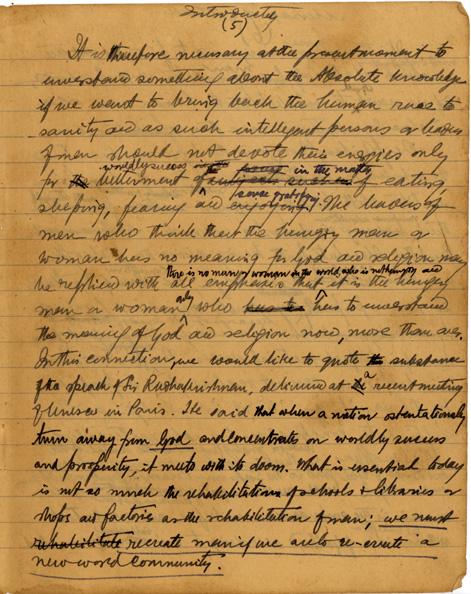 Introductory
(5)
It is therefore necessary at the present moment to
understand something about the Absolute knowledge
if we want to bring back the human race to
sanity and as such intelligent persons or leaders
of men should not devote their energies only
worldly success in the matter
for betterment of eating
sense gratifying
sleeping, fearing and enjoying. The leaders of
men who think that the hungry man or
woman has no meaning for God and religion may
there is no man or woman in the world, who is not hungry and
be replied with all emphasis that it is the hungry
only
man or woman who has to understand
the meaning of God and religion now, more than ever.
In this connection, we would like to quote the substance
of the speach of Sir Radhakrishnan, delivered at a recent meeting
of Unesco in Paris. He said that when a nation ostentationally
turn away from God and concentrates on worldly success
and prosperity, it meets with its doom. What is essential today
is not so much the rehabilitation of schools & libraries or
shops and factories as the rehabilitation of man; we must
rehabilitate recreate man if we are to re-create a
new world community.